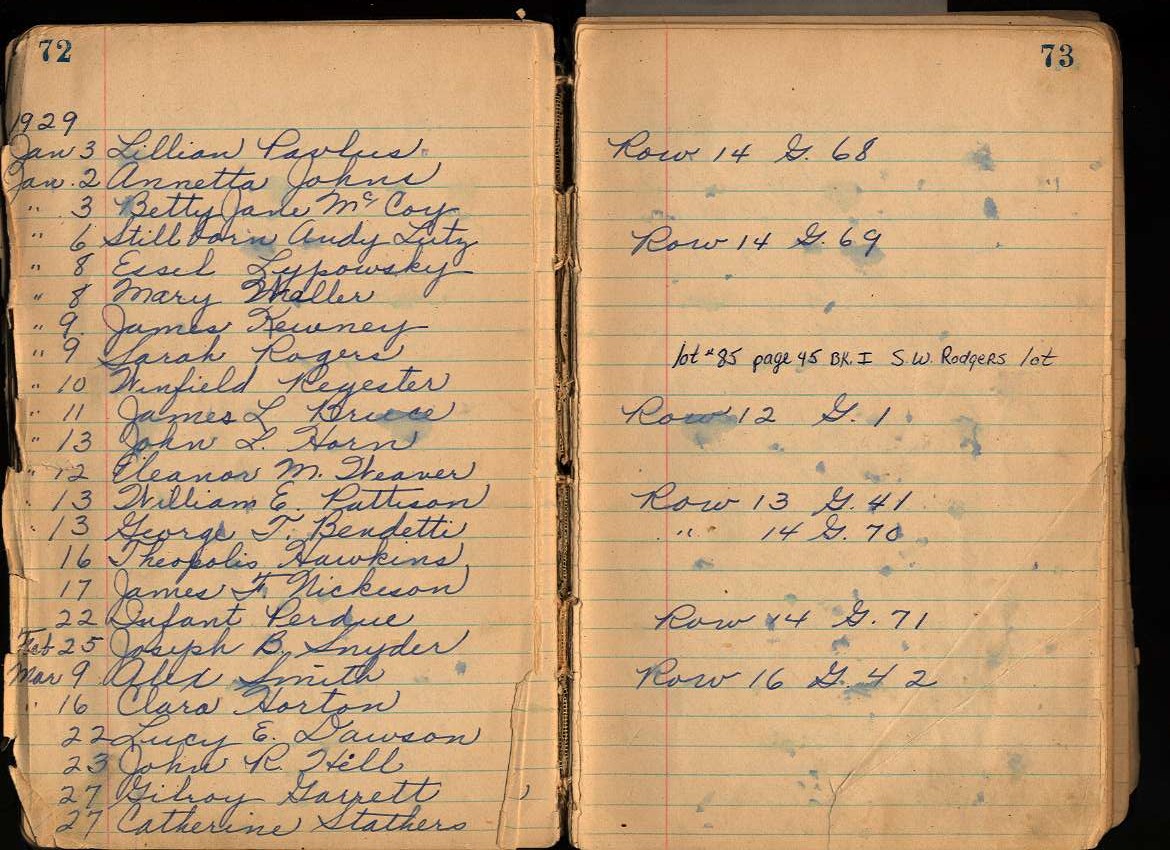 72
1929
Jan 3 Lillian Pavlus
Jan. 2 Annetta Johns
" 3 Betty Jane McCoy
" 6 Stillborn Andy Lutz
" 8 Essel Lypowsky
" 8 Mary Waller
" 9. James Kewney
" 9 Sarah Rogers
" 10 Winfield Regester
" 11 James L Bruce
" 13 John L. Horn
" 12 Eleanor M. Weaver
" 13 William E. Pattison
" 13 George T. Bendetti
16 Theopolis Hawkins
17 James F. Nickeson
22 Infant Perdue
Feb 25 Joseph B. Snyder
Mar 9 Alex Smith
" 16 Clara Horton
22 Lucy E. Dawson
23 John R Hill
27 Gilroy Garrett
27 Catherine Stathers
73
Row 14 G. 68
Row 14 G. 69
lot #85 page 45 BK. I S.W. Rodgers lot
Row 12 G. 1
Row 13 G. 41
" 14 G. 70
Row 14 G. 71
Row 16 G. 42